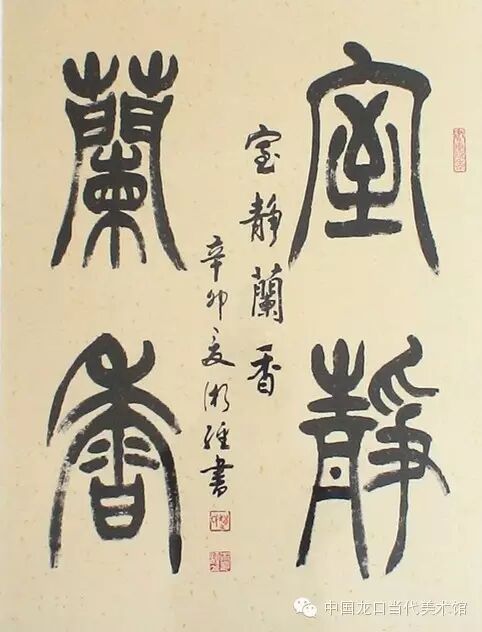 室靜
蘭香
室靜蘭香
辛卯夏書
中国龙口当代美术馆